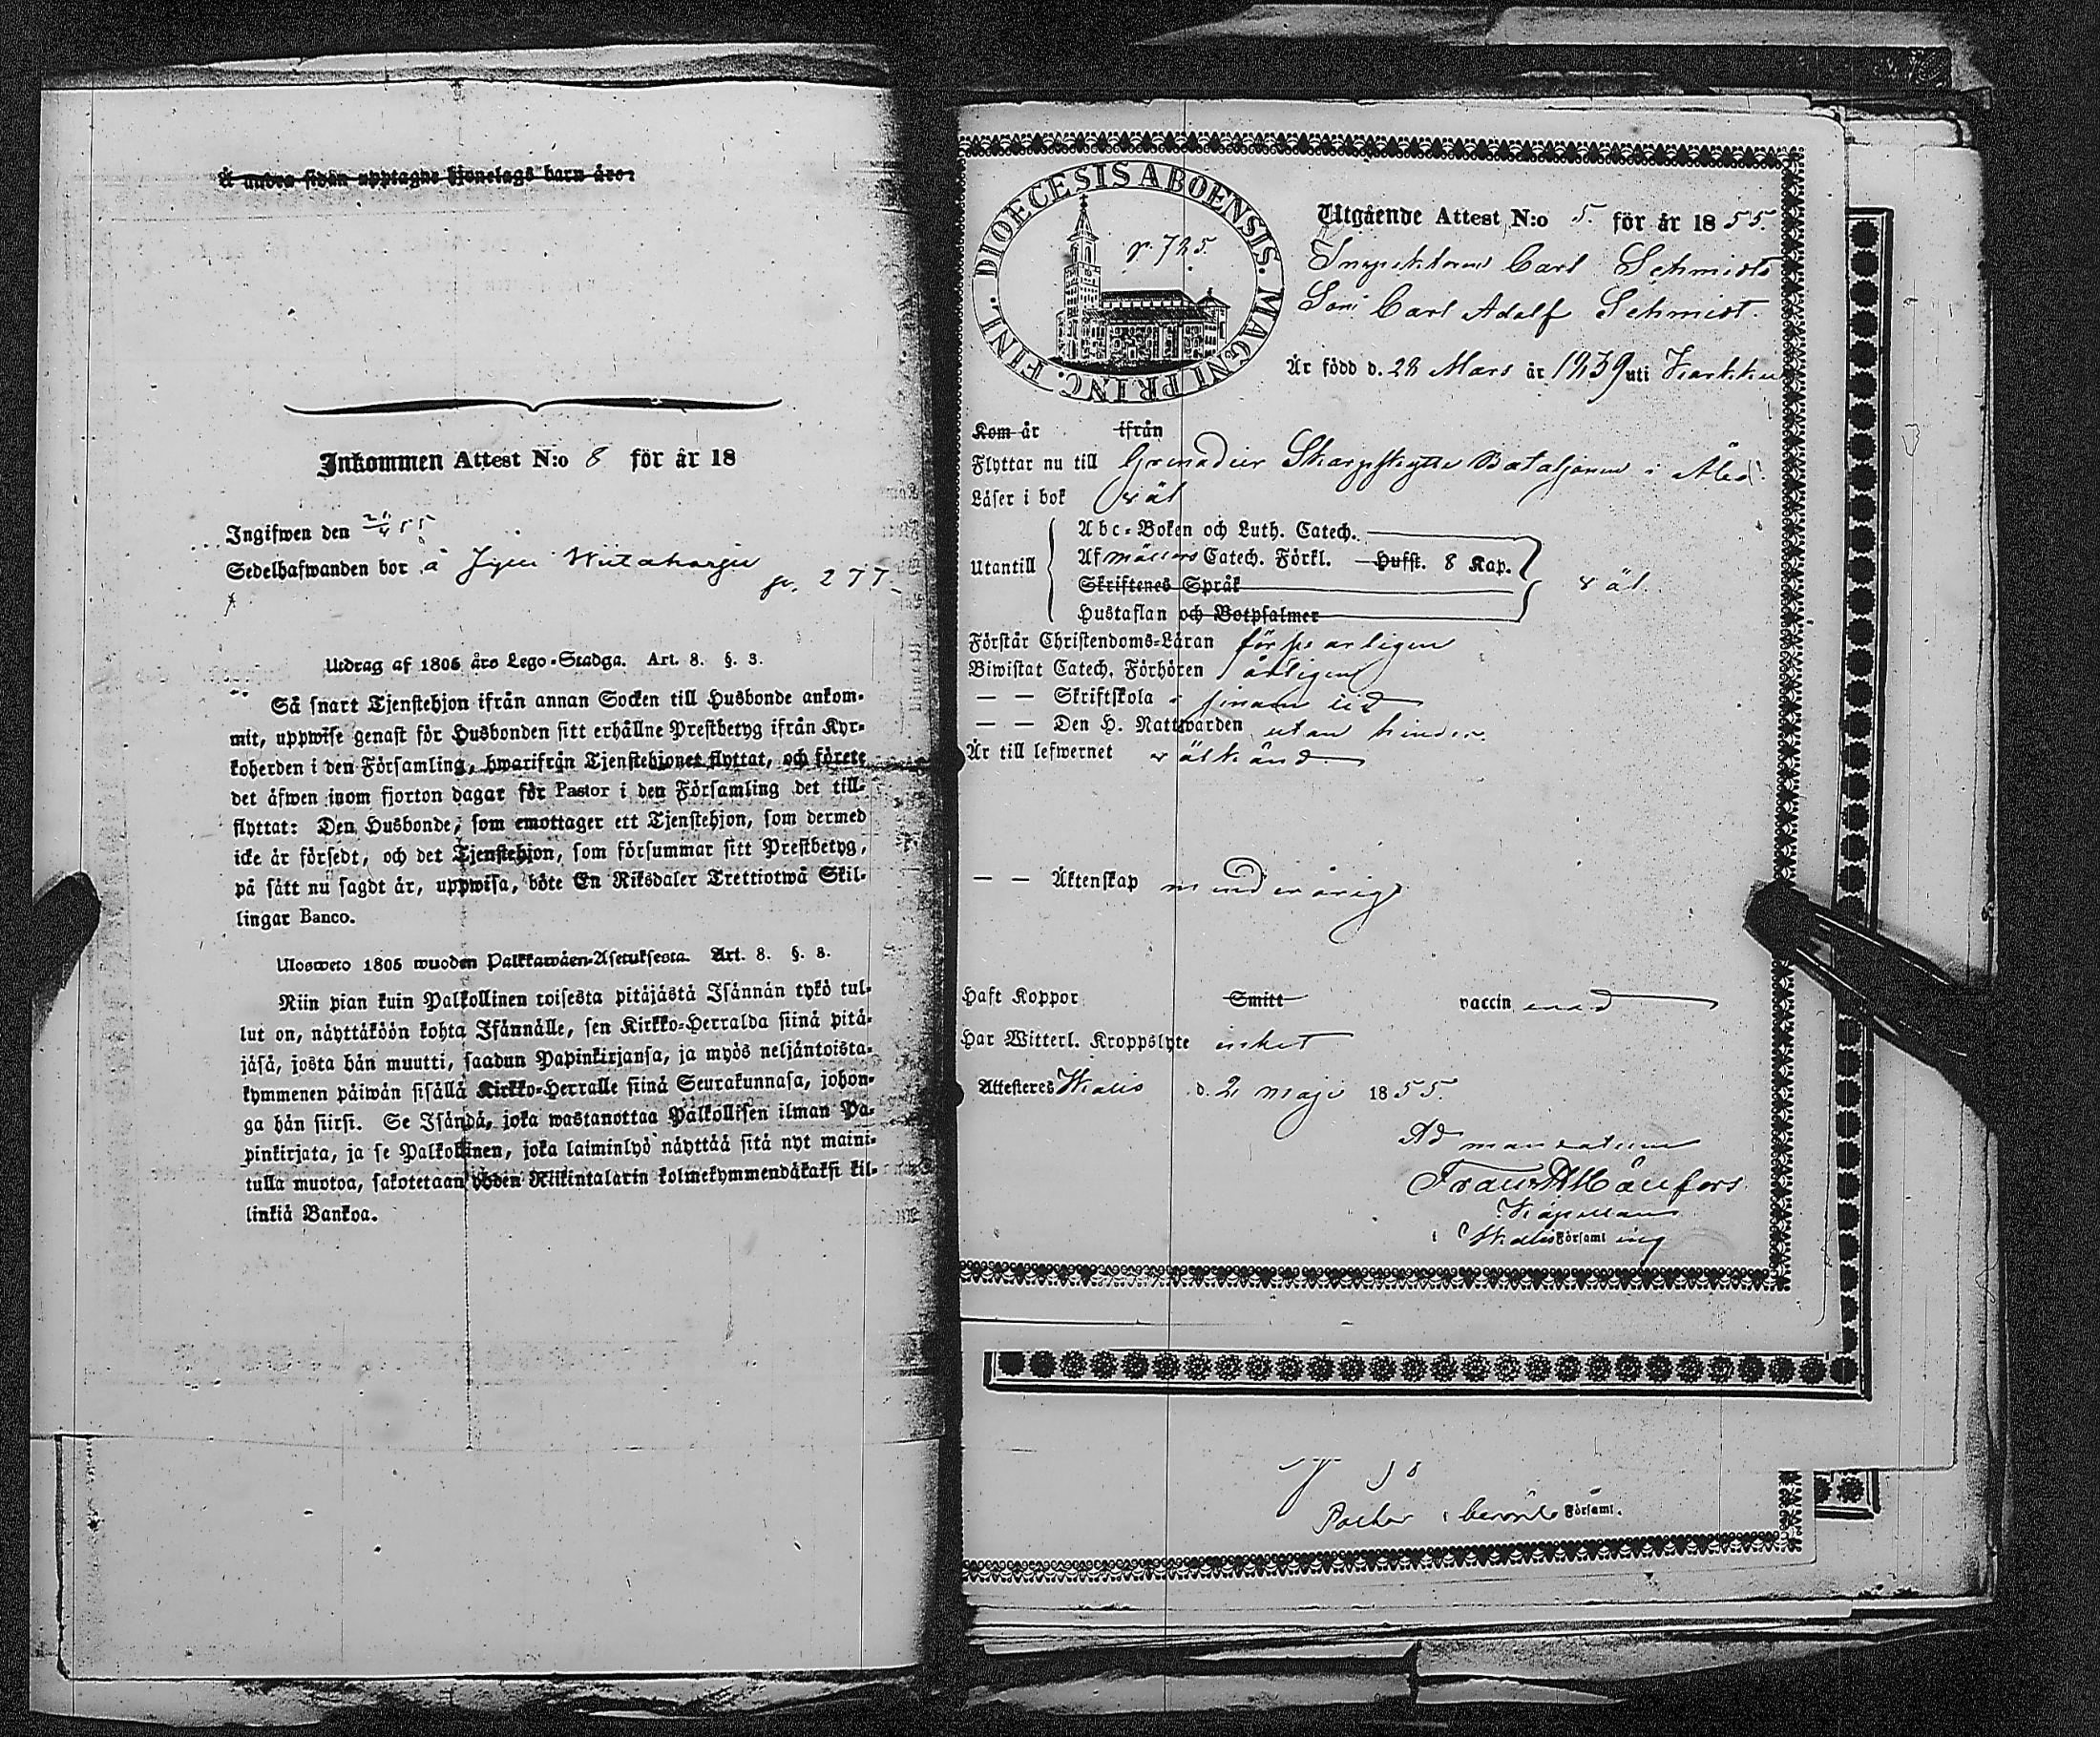 Å andra sidan upptagne hjonelags barn äro:
Inkommen Attest N:o 8 för år 18
Ingifwen den 55
Sedelhafwanden bor å
Utdrag af 1805 års Lego-Stadga. Art. 8. §. 3.
Så snart Tjenstehjon ifrån annan Socken till Husbonde ankom-
mit, uppwise genast för Husbonden sitt erhållne Prestbetyg ifrån Kyr-
koherden i den Församling, hwarifrån Tjenstehjonet flyttat, och förete
det äfwen inom fjorton dagar för Pastor i den Församling det till-
flyttat: Den Husbonde, som emottager ett Tjenstehjon, som dermed
icke är försedt, och det Tjenstehjon, som försummar sitt Prestbetyg,
på sätt nu sagdt är, uppwisa, böte En Riksdaler Trettiotwå Skil-
lingar Banco.
Ulosweto 1805 wuoden Palkkawäen-Asetuksesta. Art. 8. §. 8.
Niin pian kuin Palkollinen toisesta pitäjästä Isännän tykö tul-
lut on, näyttäköön kohta Isännälle, sen Kirkko-Herralda siinä pitä-
jäsä, josta hän muutti, saadun Papinkirjansa, ja myös neljäntoista-
kymmenen päiwän sisällä Kirkko-Herralle siinä Seurakunnasa, johon-
ga hän siirsi. Se Isändä, joka wastanottaa Palkollisen ilman Pa-
pinkirjata, ja se Palkollinen, joka laiminlyö näyttää sitä nyt maini-
tulla muotoa, sakotetaan yhden Riikintalarin kolmekymmendäkaksi kil-
linkiä Bankoa.
DIOECESIS ABOENSIS. MAGNI PRINC. FINL.
p. 725.
Utgående Attest N:o 5. för år 1855.
Inspektoren Carl Schmidts
Son Carl Adolf Schmidt.
Är född d. 28 Mars år 1839 uti Karkku
Kom år ifrån
Flyttar nu till Grenadier Skarpskytte Bataljonen i Åbo.
Läser i bok väl
Utantill
Abc-Boken och Luth. Catech.
Af Möllers Catech. Förkl. Hufst. 8 Kap.
Skriftenes Språk
väl.
Hustaflan och Botpsalmer
Förstår Christendoms-Läran försvarligen
Biwistat Catech. Förhören årligen
— — Skriftskola i sinom tid
— — Den H. Nattwarden utan hinder.
Är till lefwernet välkänd
— — Äktenskap minderårig
Haft Koppor Smitt vaccinerad
Har Witterl. Kroppslyte intet
Attesteres d. 2 maji 1855.
Ad mandatum
Kapellan
i Församling
i Församl.